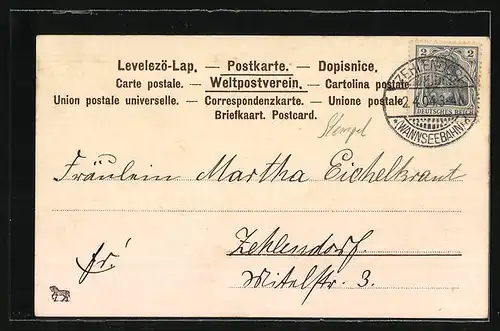 Levelezö-Lap. — Postkarte. — Dopisnice.
Carte postale. — Weltpostverein. — Cartolina postale
Union postale universelle. — Correspondenzkarte. — Unione postale
Briefkaart. Postcard.
2 2
DEUTSCHES REICH
ZEHLENDORF
2.4.04
*(WANNSEEBAHN)*
Stempel
Fräulein Martha Eichelkraut
Zehlendorf.
fr.
Mitelstr. 3.